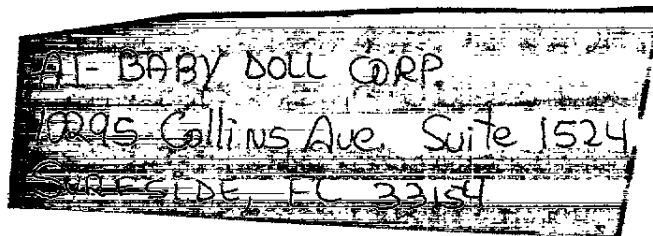 AI-BABY DOLL CORP.
10295 Collins Ave. Suite 1524
SURFSIDE, FL 33154